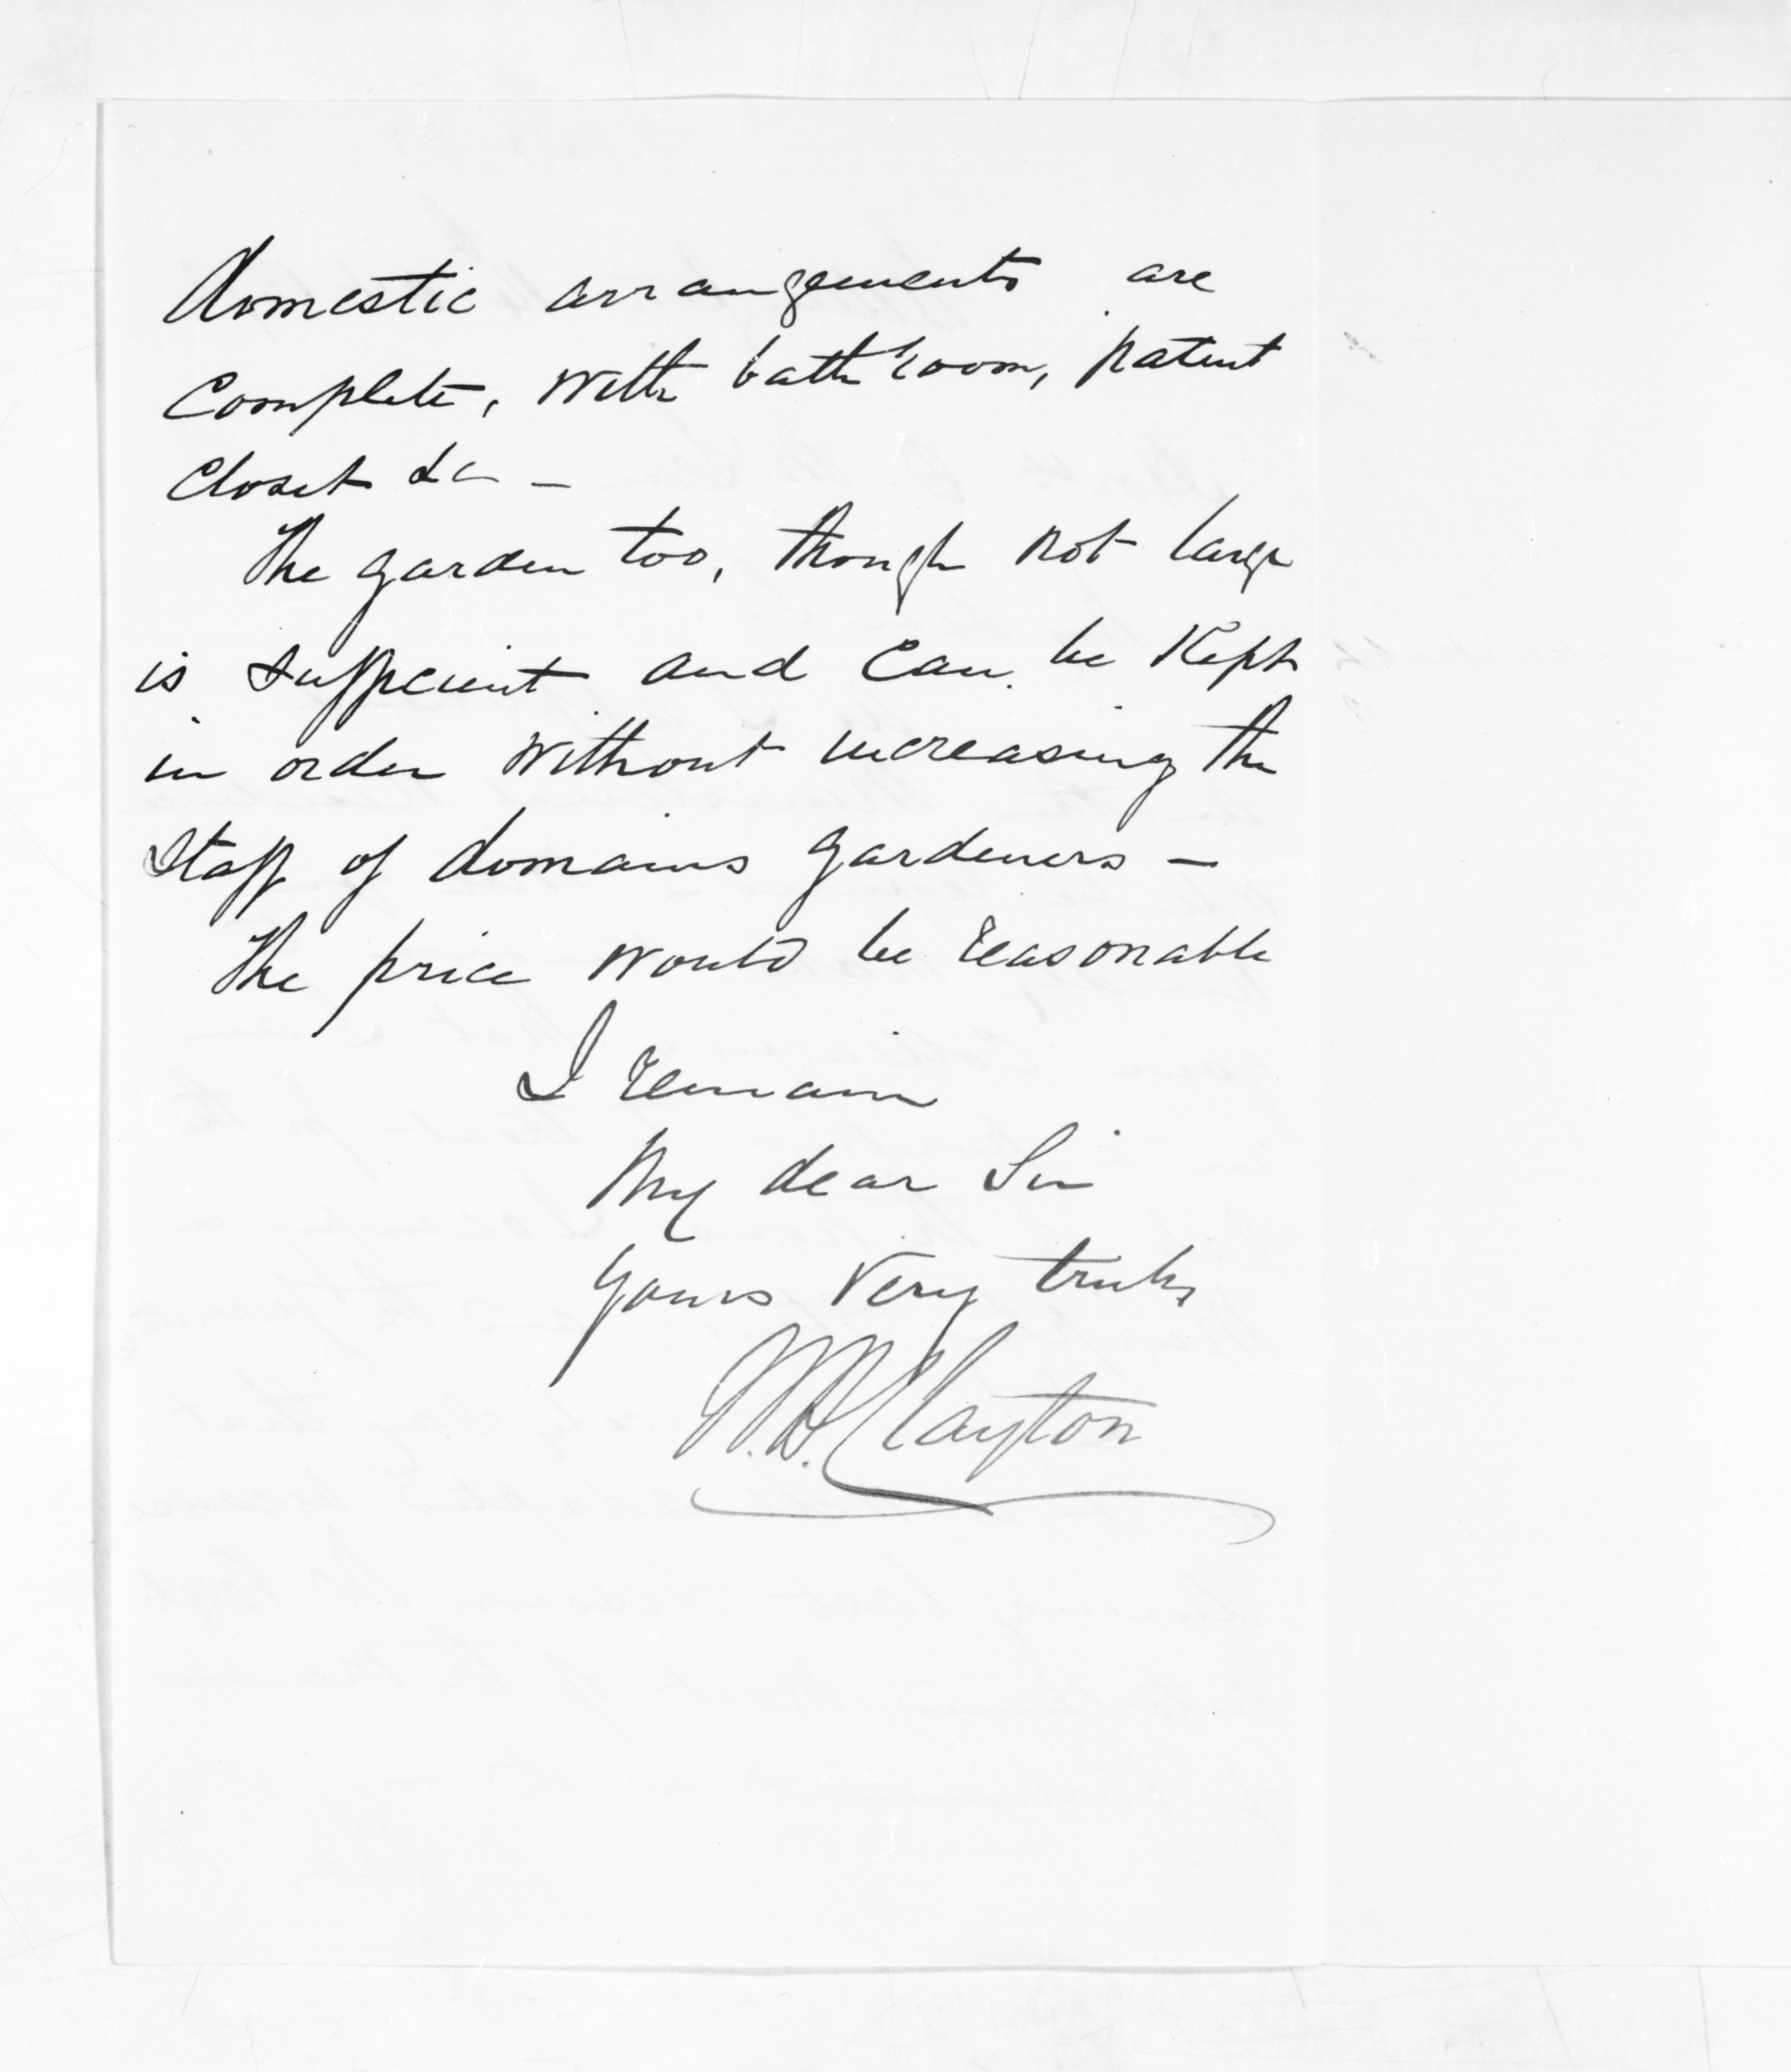 domestic arrangements are
complete, with bath room, patent
closet &c —
The garden too, though not large
is sufficient and can be kept
in order without increasing the
staff of domains gardeners —
The price would be reasonable
I remain
My dear Sir
Yours very truly
W.H. Clayton